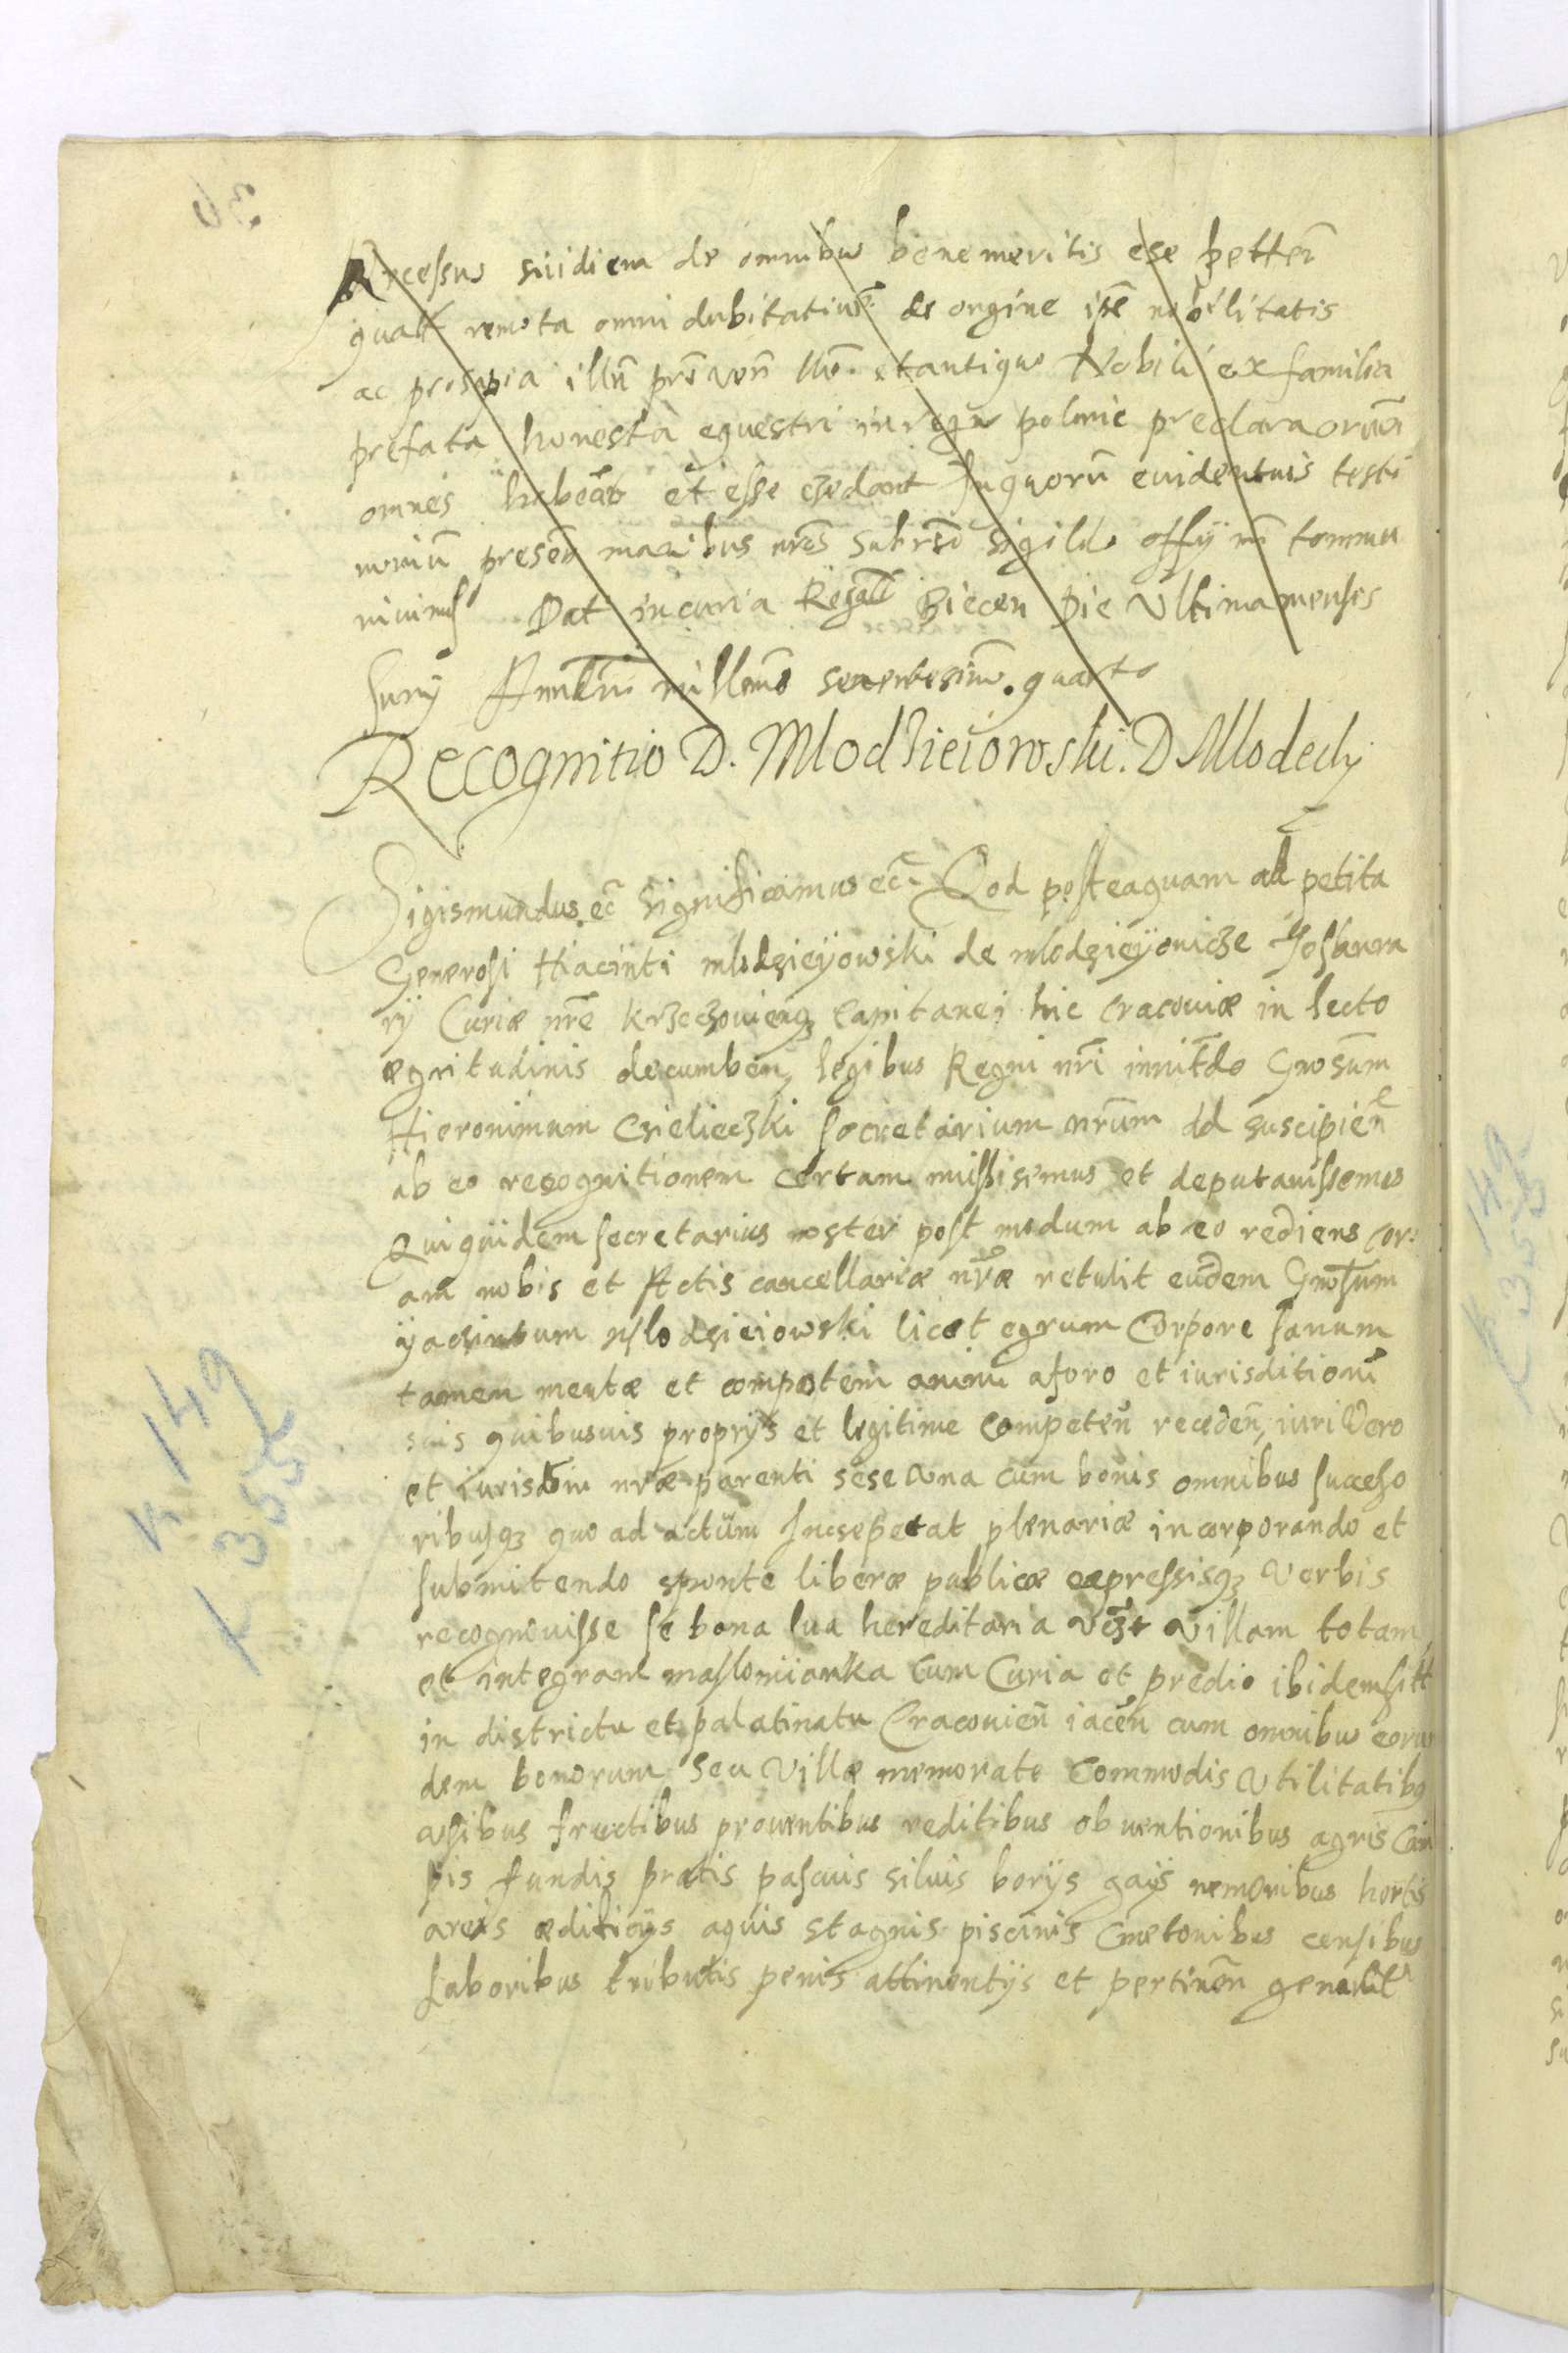 de omnibus benemeritis ese petten̄
remota omni dubitatiun̄ de orgine ip̄e nobilitatis
ac prosapia illū prē ven̄ et antiquo Nobili ex familia
prefata honesta equestri in regn polonie preclara ortum
omnes habeāt et esse credant Inquorū euidentuis testi
moniū presen̄ manibus nrēs subrsc̄ sigillo offÿ nr̄i commu
niuimus Dat in curia Regali Biecen die Ultima menses
Junÿ Ann̄ Dn̄i millemō sexentesimō. quarto
Recognitio D. Mlodzieiowski. D Mlodecky
Sigismundus ec̄ Significamus ec̄ Qod posteaquam ad petita
Generosi Hiacinti mlodzieÿowski de mlodzieÿowicze Thesaura
rÿ Curiæ nrē krzeczouieng capitanei hic cracouiæ in lecto
ægritudinis decumben, legibus Regni nr̄i innitd̄o Gnosum
Hieronimum Csielieczki secretarium nrum ad suscipien̄
ab eo recognitionem certam missisemus et deputauissemus
Quiquidem secretarius noster post modum ab eo rediens cor:
am nobis et Actis cancellariæ nr̄æ retulit eudem Gnosum
ÿacsintum mlodzieiowski licet egrum Corpore sanum
tamen mentæ et compotem animi aforo et iurisditioni
suis quibusuis proprÿs et legitime competen̄ receden̄, iuri Vero
et iurisdin̄ nræ parenti sese una cum bonis omnibus succeso
ribusq quo ad actum Incseperat plenariæ incorporando et
submitendo sponte liberæ publicæ expressisq Verbis
recognouisse se bona sua hereditaria vcz̄t Villam totam
et integram maslomianka cum Curia et predio ibidemsitt
in districtu et palatinatu Cracouien̄ iacen̄ cum omnibus eorun
dem bonorum seu Villæ memorate Commodis Utilitatibq
Usibus fructibus prouentibus reditibus obuentionibus agris Cam
pis fundis pratis pascuis siluis borÿs gaÿs nemoribus hortis
areis ædificÿs aquis stagnis piscinis Cmetonibus censibus
Laboribus tributis penis attinentÿs et pertinen̄ generalit
k 149
k 355